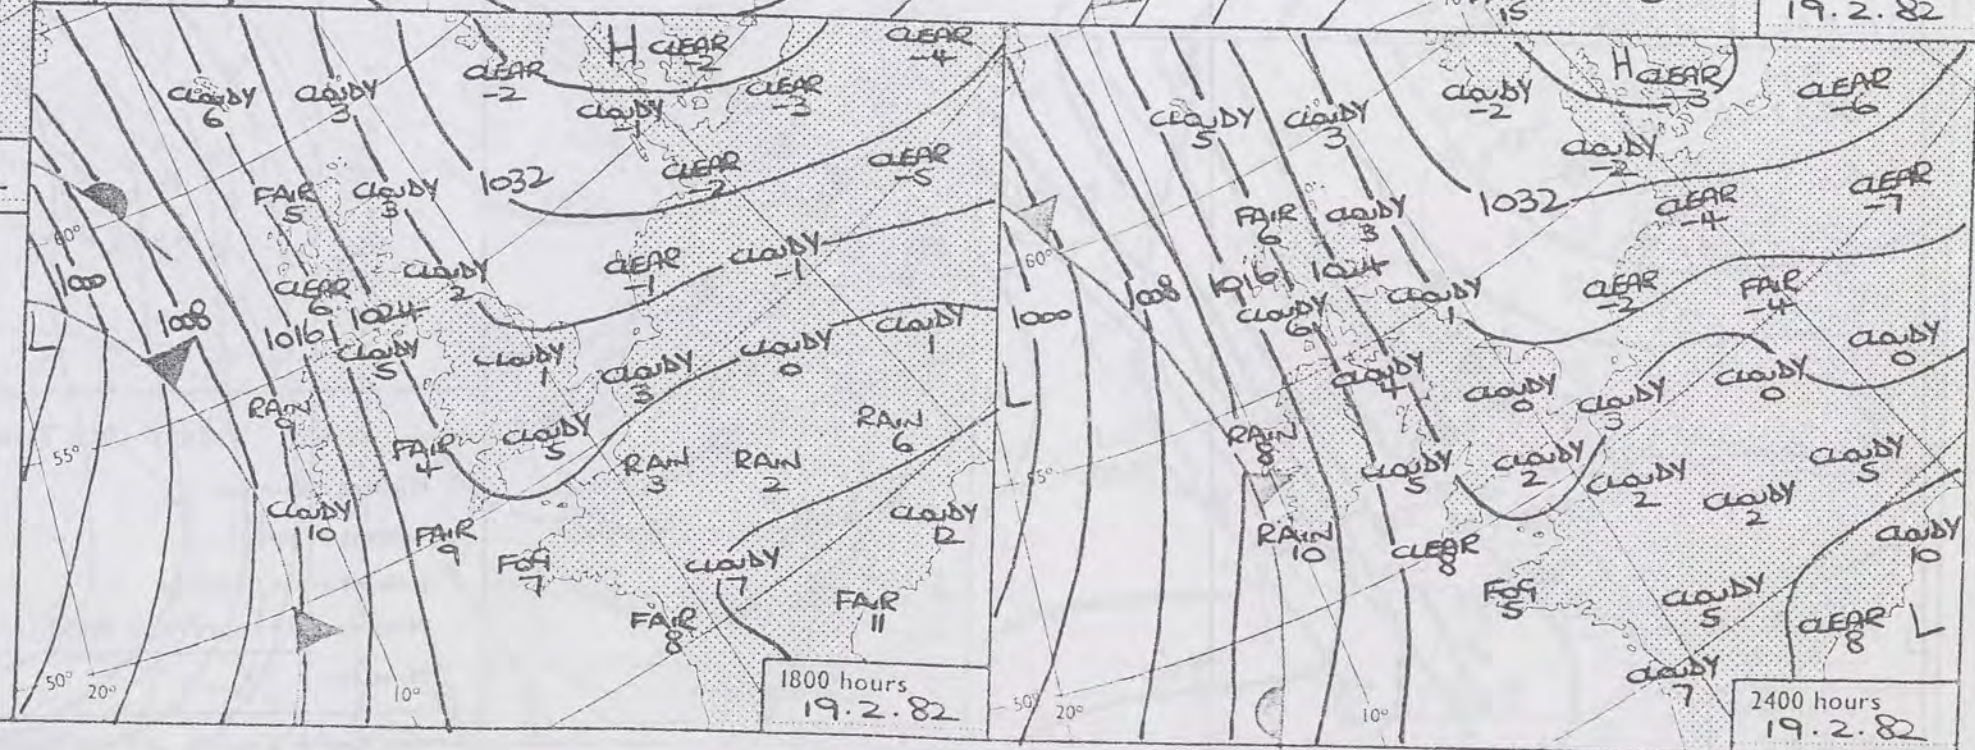 15
19.2.82
H CLEAR
-2
CLEAR
-4
CLEAR
-2
CLEAR
-3
CLOUDY
6
CLOUDY
3
CLOUDY
-1
CLEAR
-2
CLEAR
-5
1032
FAIR
5
CLOUDY
3
60°
CLOUDY
2
CLEAR
-1
CLOUDY
-1
1000
CLEAR
6
1008
1016
1024
L
CLOUDY
5
CLOUDY
1
CLOUDY
3
CLOUDY
0
CLOUDY
1
RAIN
9
55°
FAIR
4
CLOUDY
5
RAIN
3
RAIN
2
RAIN
6
CLOUDY
10
FAIR
9
FOG
7
CLOUDY
7
CLOUDY
12
FAIR
8
FAIR
11
50°
20°
10°
1800 hours
19.2.82
H CLEAR
-3
CLOUDY
-2
CLEAR
-6
CLOUDY
5
CLOUDY
3
CLOUDY
-2
1032
CLEAR
-4
CLEAR
-7
FAIR
6
CLOUDY
3
60°
1000
1008
1016
1024
CLOUDY
6
CLOUDY
1
CLEAR
-2
FAIR
-4
CLOUDY
0
L
CLOUDY
4
CLOUDY
0
CLOUDY
3
CLOUDY
0
RAIN
8
55°
CLOUDY
5
CLOUDY
2
CLOUDY
2
CLOUDY
2
CLOUDY
5
RAIN
10
CLEAR
8
FOG
5
CLOUDY
5
CLOUDY
10
CLEAR
8
L
CLOUDY
7
50°
20°
10°
2400 hours
19.2.82